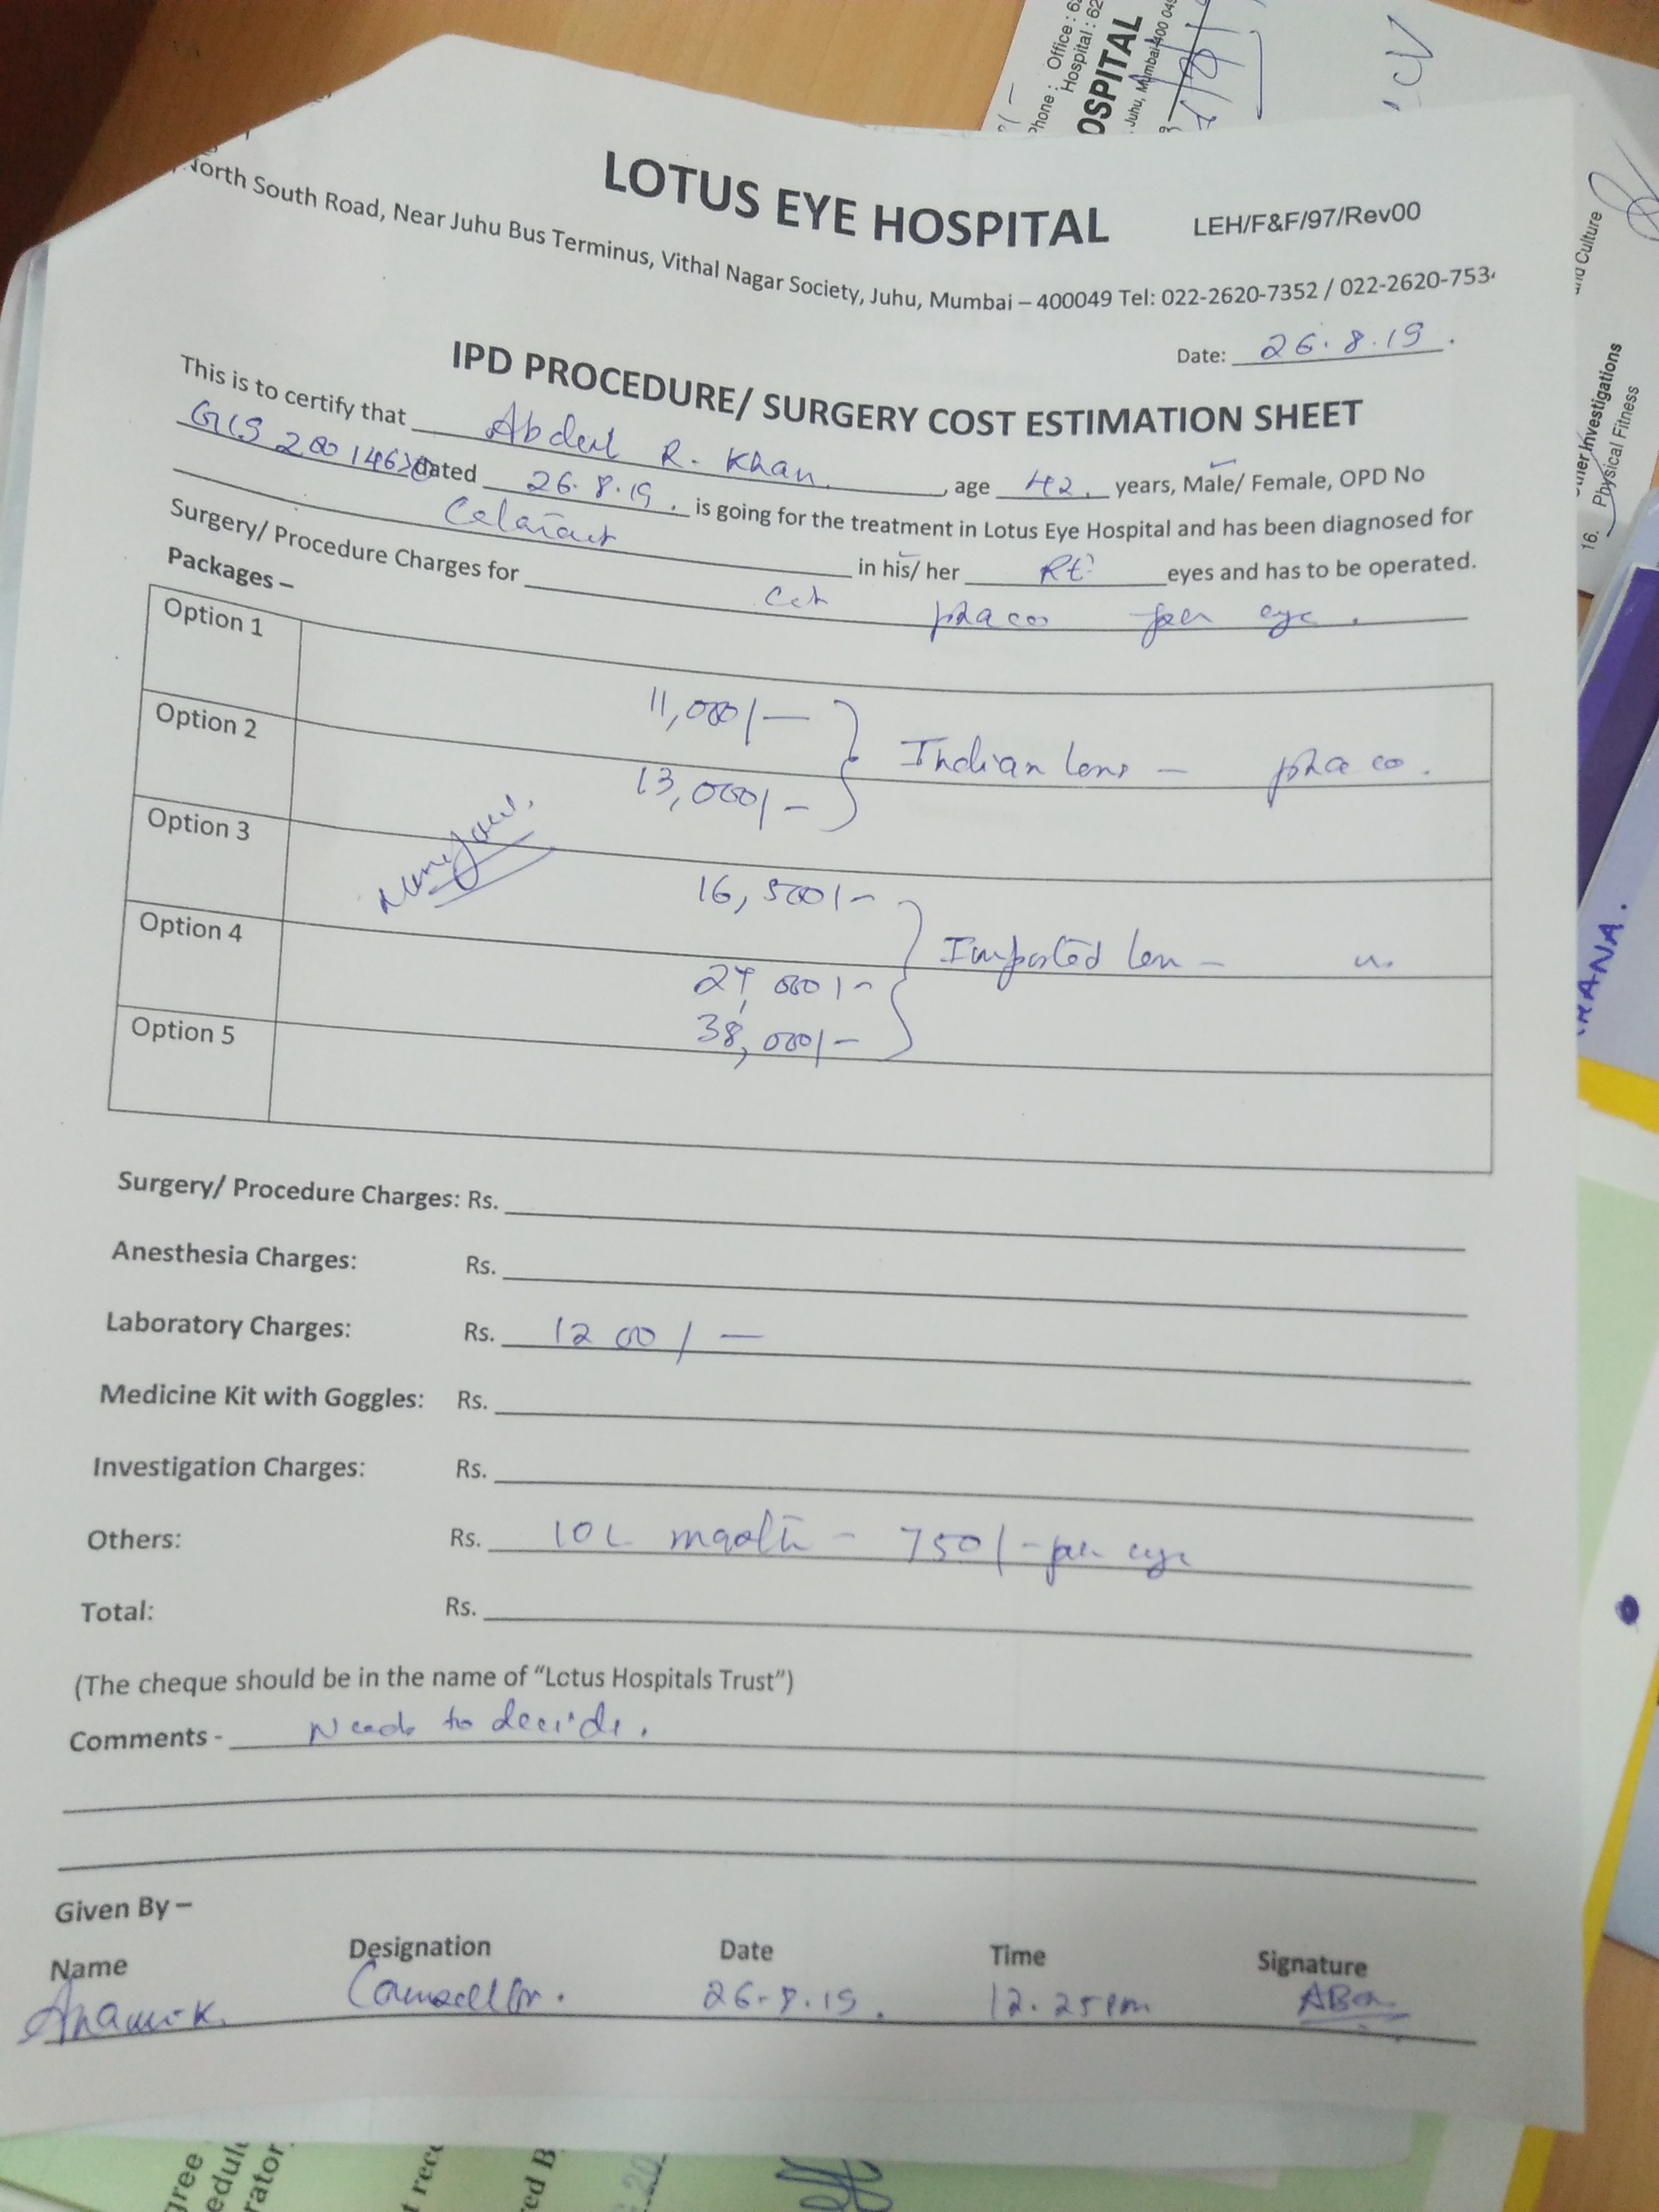 LOTUS EYE HOSPITAL
LEH/F&F/97/Rev00
North South Road, Near Juhu Bus Terminus, Vithal Nagar Society, Juhu, Mumbai – 400049 Tel: 022-2620-7352 / 022-2620-753
Date: 26.8.19.
IPD PROCEDURE/ SURGERY COST ESTIMATION SHEET
This is to certify that Abdul R. Khan, age 42. years, Male/ Female, OPD No
dated 26.8.19. is going for the treatment in Lotus Eye Hospital and has been diagnosed for
Cataract in his/ her Rt eyes and has to be operated.
Surgery/ Procedure Charges for phaco per eye.
Packages –
Option 1
11,000/-
Option 2
13,000/-
Indian lens - phaco.
Option 3
16,500/-
Option 4
Imported len -
Option 5
38,000/-
Surgery/ Procedure Charges: Rs.
Anesthesia Charges: Rs.
Laboratory Charges: Rs. 1200/-
Medicine Kit with Goggles: Rs.
Investigation Charges: Rs.
Others: Rs. IOL - 750/- per eye
Total: Rs.
(The cheque should be in the name of “Lotus Hospitals Trust”)
Comments - Needs to decide.
Given By –
Name Designation Date Time Signature
Counsellor. 26.8.19. 12.25pm
Phone : Office :
Hospital : 62
OSPITAL
Juhu, Mumbai-400 049
and Culture
Other Investigations
16. Physical Fitness
RANA.